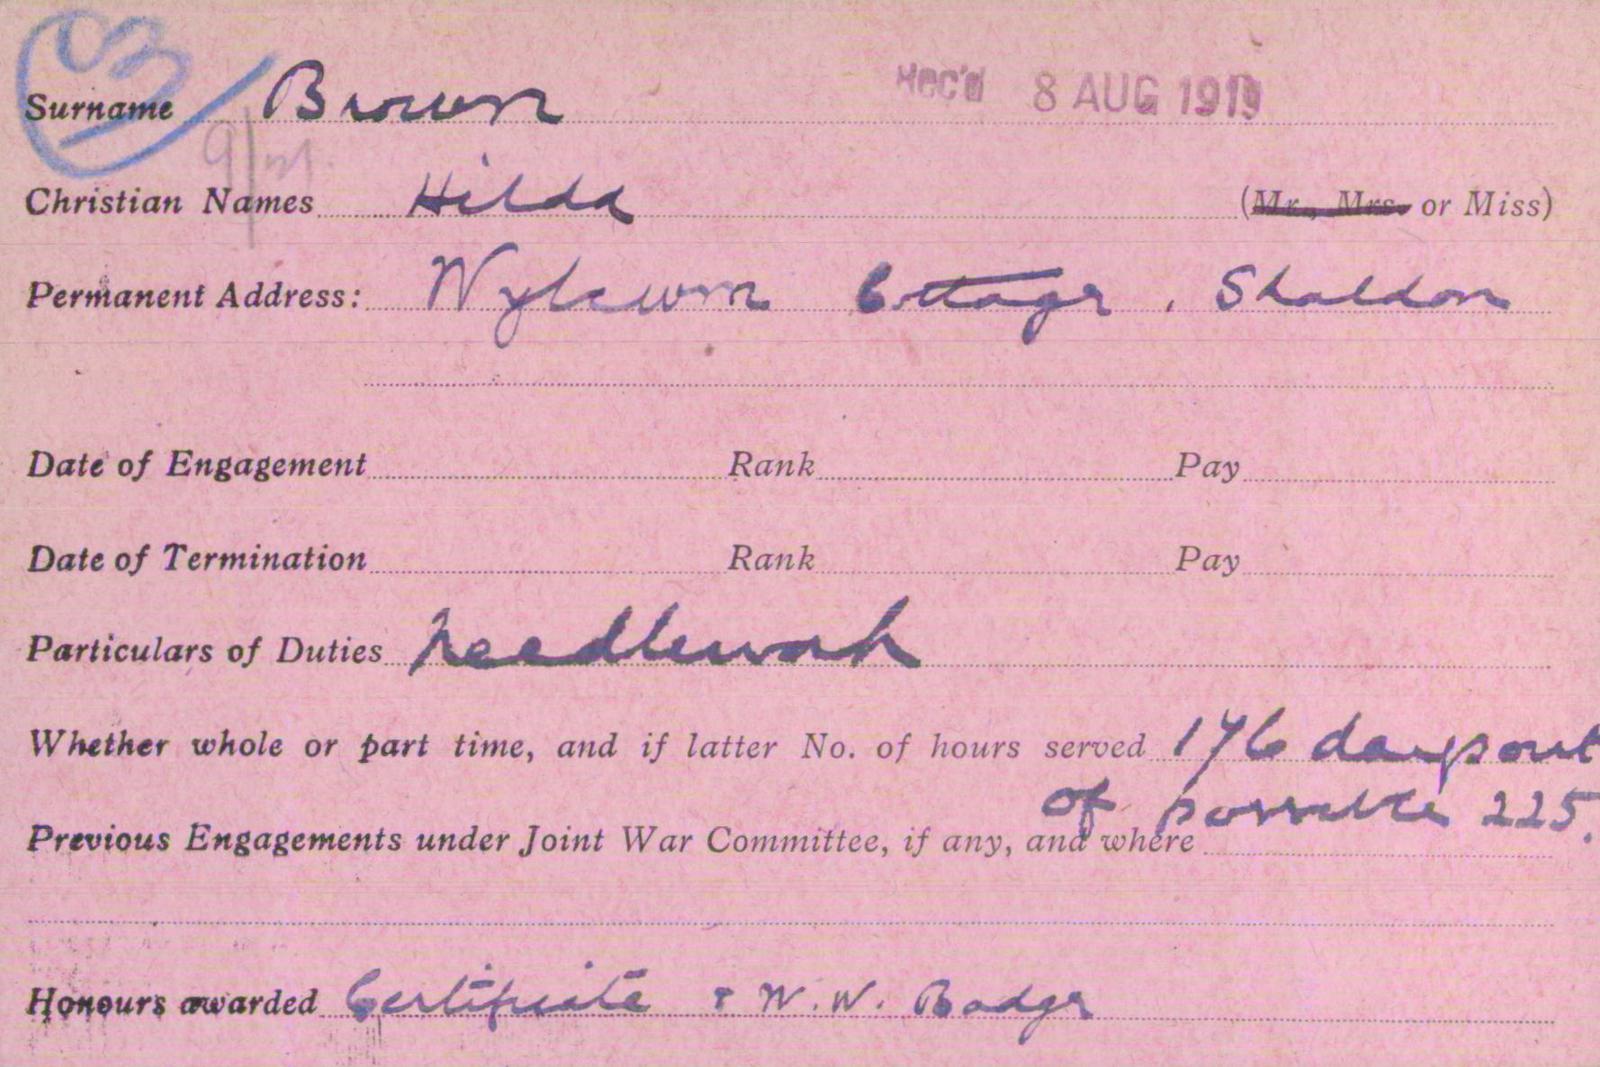 03
Surname Brown Rec'd 8 AUG 1919
Christian Names Hilda (Mr., Mrs. or Miss)
Permanent Address: Cottage, Shaldon
Date of Engagement Rank Pay
Date of Termination Rank Pay
Particulars of Duties Needlework
Whether whole or part time, and if latter No. of hours served 176 days out
of possible 225.
Previous Engagements under Joint War Committee, if any, and where
Honours awarded Certificate & W.W. Badge